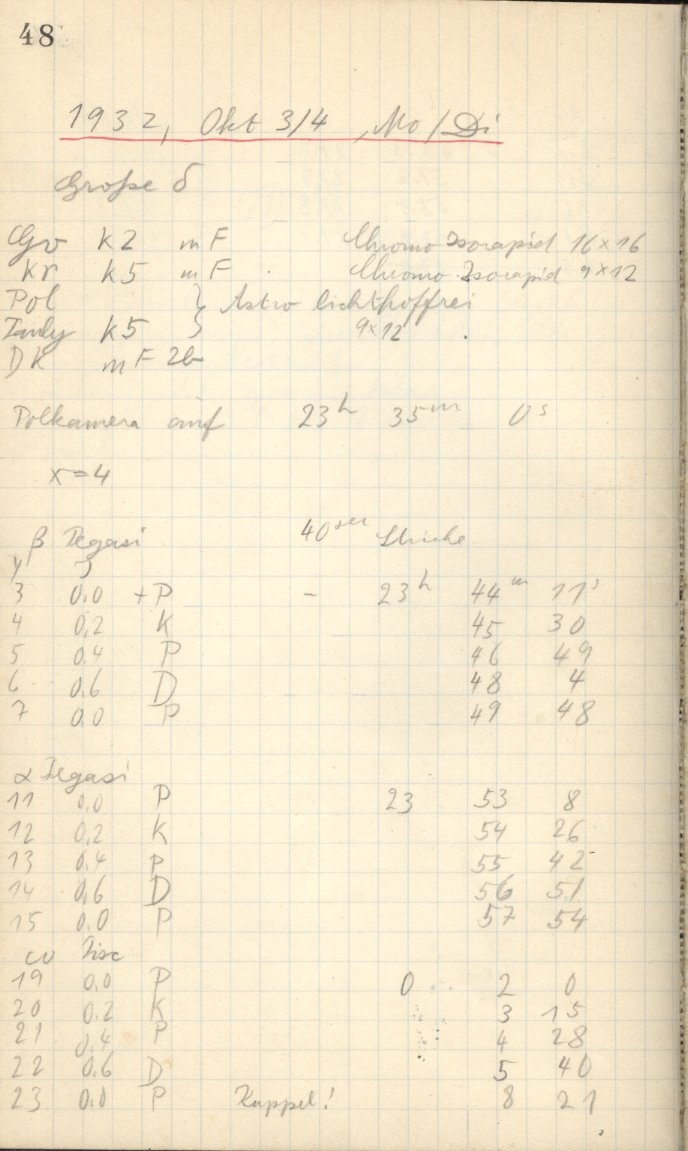 48
1932, Okt 3/4, Mo/Di
Große δ
Gr K2 mF Chromo Isorapid 16×16
Kr K5 mF Chromo Isorapid 9×12
Pol } Astro lichthoffrei
K5 9×12
DK mF 2b
Polkamera auf 23h 35m 0s
x=4
β Pegasi 40sec Striche
y ζ
3 0.0 +P - 23h 44m 11s
4 0.2 K 45 30
5 0.4 P 46 49
6 0.6 D 48 4
7 0.0 P 49 48
α Pegasi
11 0.0 P 23 53 8
12 0.2 K 54 26
13 0.4 P 55 42
14 0.6 D 56 51
15 0.0 P 57 54
ω Pisc
19 0.0 P 0 2 0
20 0.2 K 3 15
21 0.4 P 4 28
22 0.6 D 5 40
23 0.0 P Kuppel! 8 21